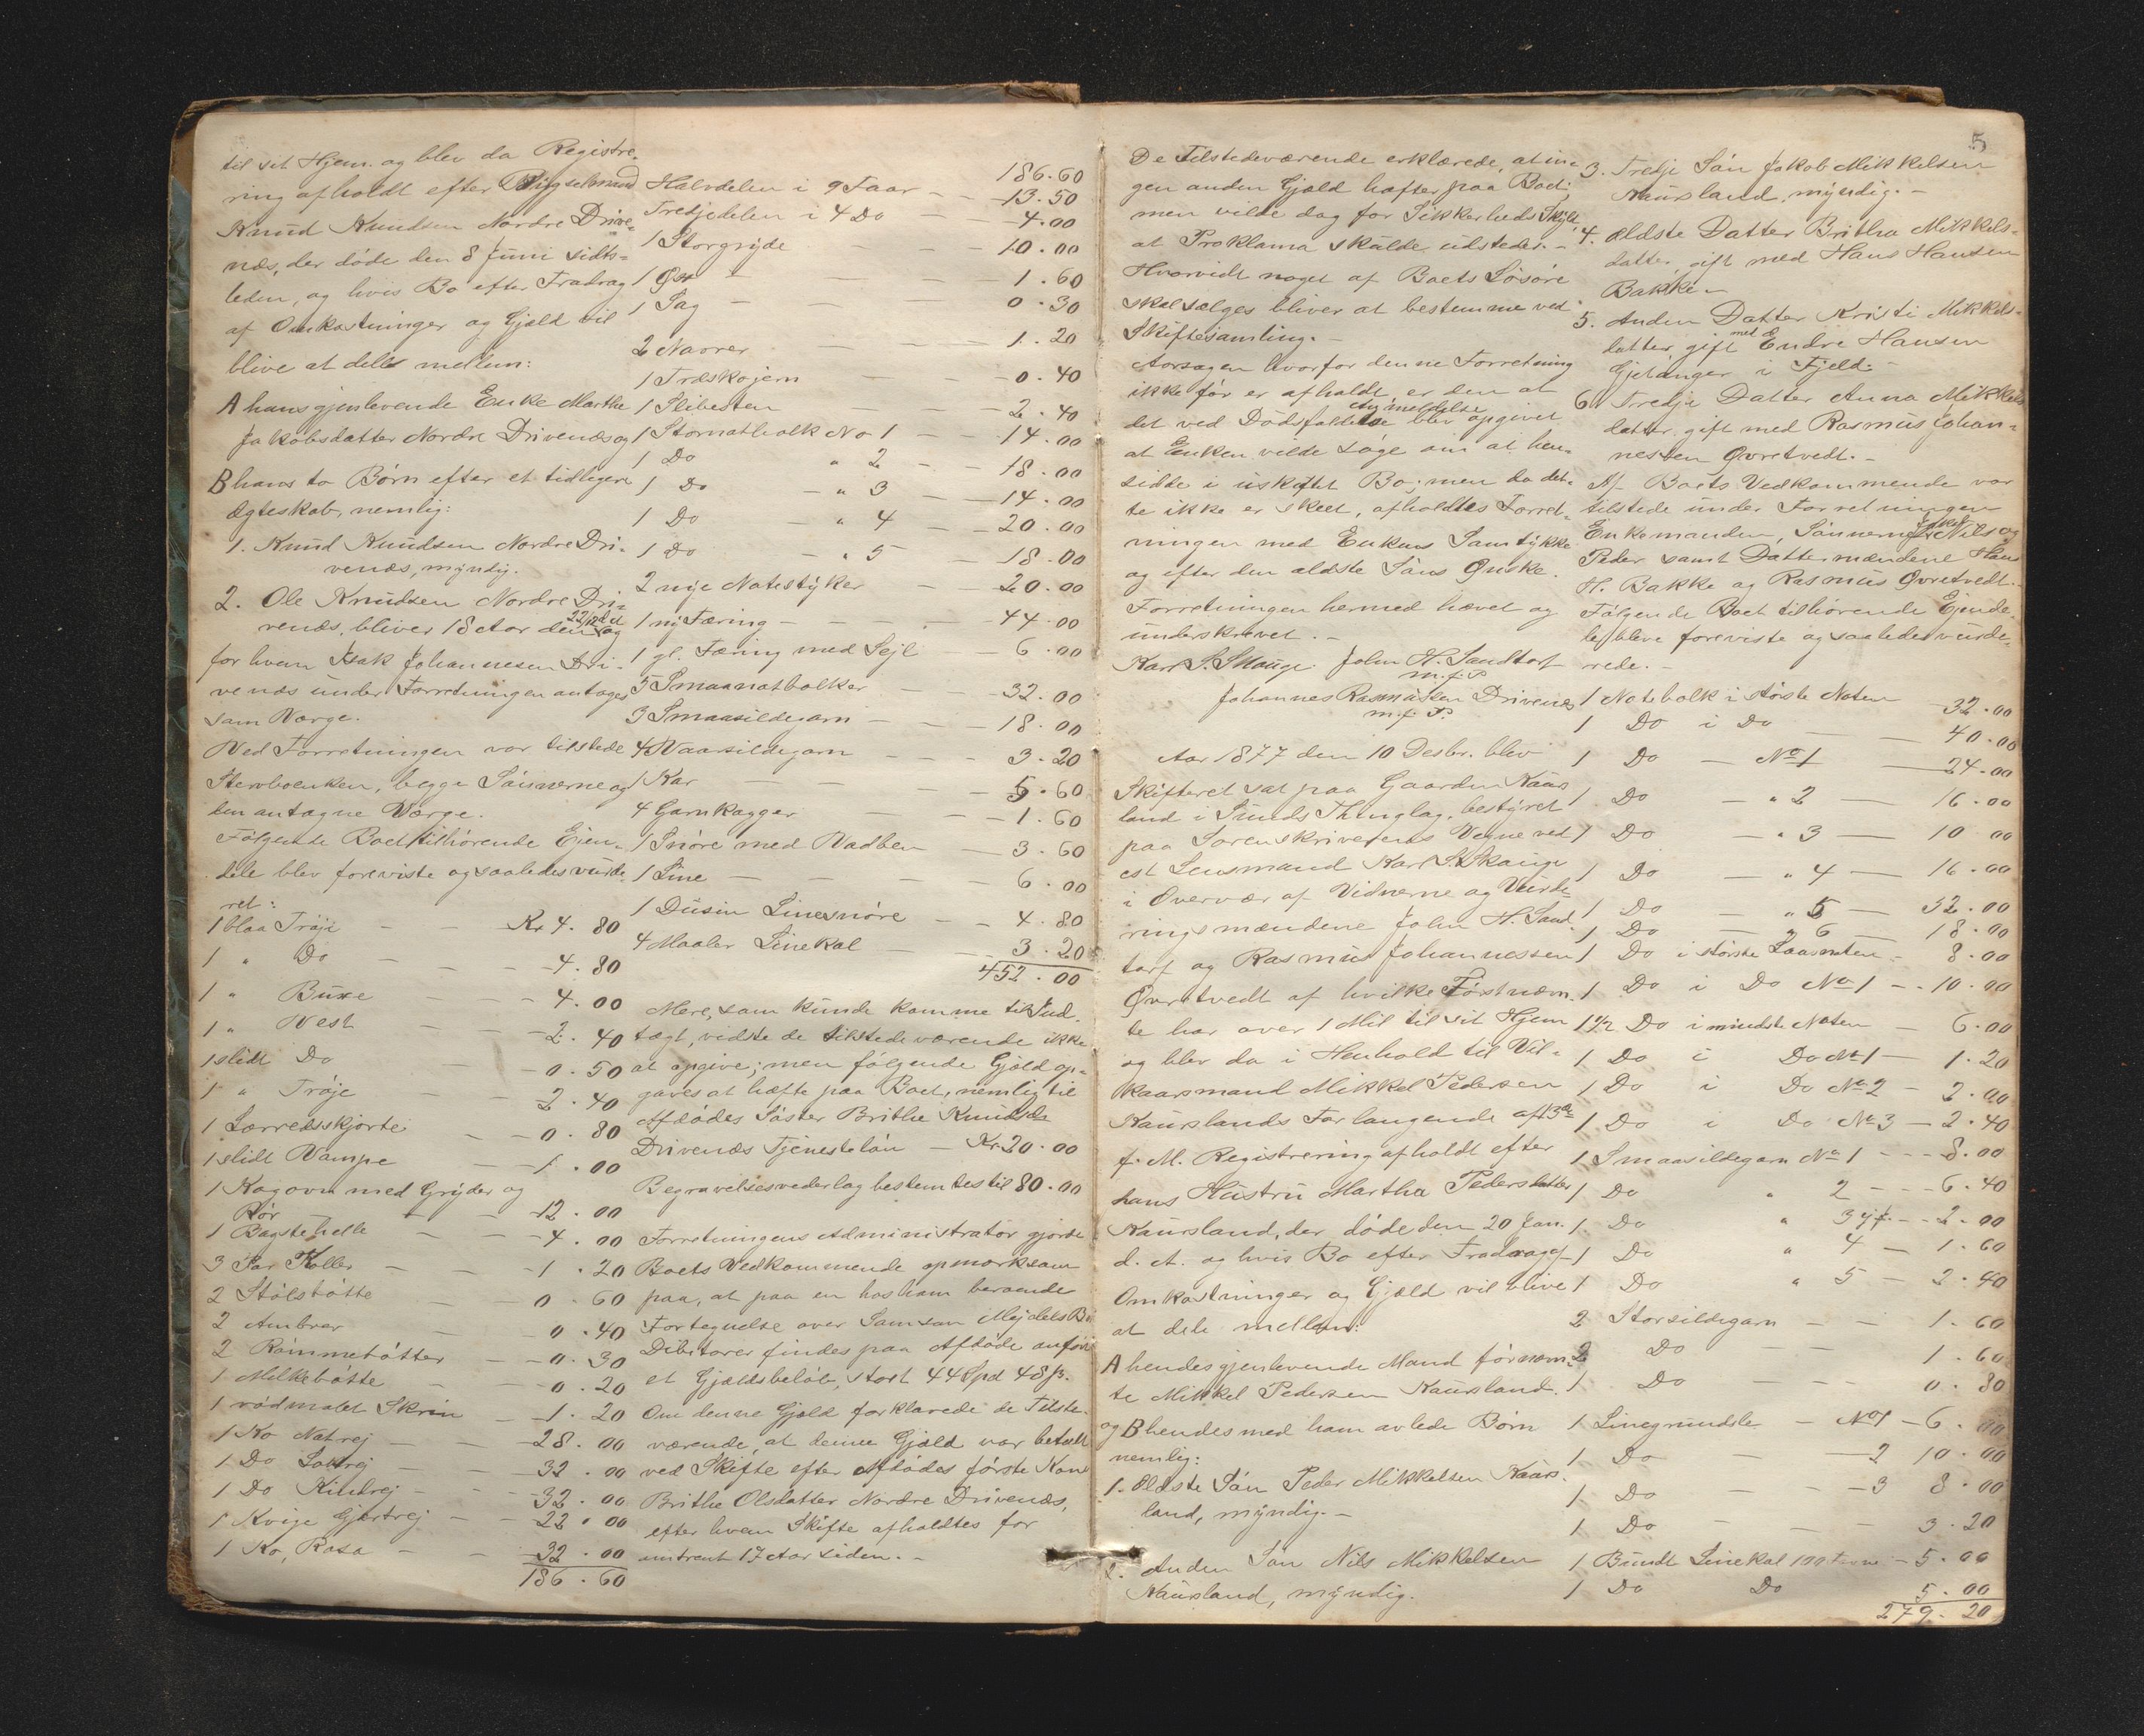 til sit Hjem. og blev da Registre-
ring afholdt efter Bygselmand
Knud Knudsen Nordre Drive-
næs, der døde den 8 Juni sidst-
leden, og hvis Bo efter Fradrag
af Omkostninger og Gjæld vil
blive at dele mellem:
A hans gjenlevende Enke Marthe
Jakobsdatter Nordre Drivenæs og
B hans to Børn efter et tidligere
Ægteskab, nemlig:
1. Knud Knudsen Nordre Dri-
venæs, myndig.
2. Ole Knudsen Nordre Dri-
venæs, bliver 18 Aar den 22/12 d A og
for hvem Isak Johannesen Dri-
venæs under Forretningen antages
som Værge.
Ved Forretningen var tilstede
Stervboenken, begge Sønnerne og
den antagne Værge.
Følgende Boet tilhørende Ejen-
dele blev foreviste og saaledes vurde-
ret:
1 blaa Trøje - - Kr 4. 80
1 " Do - - - 4. 80
1 " Buxe - - 4. 00
1 " Vest - - 2. 40
1 slidt Do - - 0. 50
1 " Trøje - - 2. 40
1 Lærredsskjorte - - 0. 80
1 slidt Vampe - 1. 00
1 Kogovn med Gryder og
Rør - - 12. 00
1 Bagstehelle - - 4. 00
3 Par Koller - - 1. 20
2 Stølsbøtte - 0. 60
2 Ambrer - 0. 40
2 Rømmebøtter - - 0. 30
1 Melkebøtte - 0. 20
1 rødmalet Skrin - 1. 20
1 Ko Natrej - - 28. 00
1 Do - - 32. 00
1 Do Kinnrej - - 32. 00
1 Kvige Gjertrej - - 22. 00
1 Ko, Rosa - - 32. 00
186. 60
186. 60
Halvdelen i 9 Faar - - 13. 50
Tredjedelen i 4 Do - - 4. 00
1 Storgryde - - - 10. 00
1 Øxe - - - 1. 60
1 Sag - - - 0. 30
2 Navrer - - - 1. 20
1 Træskojern - - - 0. 40
1 Slibesten - - 2. 40
1 Stornotbolk No 1 - 14. 00
1 Do " 2 - - 18. 00
1 Do - " 3 - - 14. 00
1 Do - " 4 - - 20. 00
1 Do - " 5 - 18. 00
2 nye Notestyker - 20. 00
1 ny Færing - - - 44. 00
1 gl. Færing med Sejl - - 6. 00
5 Smaanotbolker - - 32. 00
3 Smaasildegarn - - 18. 00
4 Vaarsildegarn - - 3. 20
1 Kar - - - 5. 60
4 Garnkagger - - 1. 60
1 Snøre med Vadben - 3. 60
1 Line - - - 6. 00
1 Dusin Linesnøre - 4. 80
4 Maaler Linekal - 3. 20
452. 00
Mere, som kunde komme til Ind-
tægt, vidste de tilstedeværende ikke
at opgive; men følgende Gjæld op-
gaves at hæfte paa Boet, nemlig til
Afdødes Søster Brithe Knudsdr
Drivenæs Tjenesteløn - Kr. 20. 00
Begravelsesvederlag bestemtes til 80. 00
Forretningens Administrator gjorde
Boets Vedkommende opmærksom
paa, at paa en hos ham beroende
Fortegnelse over Samson Mejdells Bo
Debitorer findes paa Afdøde anført
et Gjældsbeløb, stort 44 Spd 48 ß.
Om denne Gjæld forklarede de Tilste-
værende, at denne Gjæld var betalt
ved Skifte efter Afdødes første Kone
Brithe Olsdatter Nordre Drivenæs,
efter hvem Skifte afholdtes for
omtrent 17 Aar siden. -
5
De Tilstedeværende erklærede, at in-
gen anden Gjæld hæfter paa Boet;
men vilde dog for Sikkerheds Skyld,
at Proklama skulde udstedes. -
Hvorvidt noget af Boets Løsøre
skal sælges bliver at bestemme ved
Skiftesamling. -
Aarsagen hvorfor denne Forretning
ikke før er afholdt er den at
det ved Dødsfaldets Anmeldelse blev opgivet
at Enken vilde søge om at hen-
sidde i uskiftet Bo; men da det-
te ikke er skeet, afholdtes Forret-
ningen med Enkens Samtykke
og efter den ældste Søns Ønske.
Forretningen hermed hævet og
underskrevet. -
Karl S. Skauge. John H. Sandtorf
m. f. P.
Johannes Rasmussen Drivenæs
m. f. P.
Aar 1877 den 10 Desbr. blev
Skifteret sat paa Gaarden Kaurs
land i Sunds Thinglag, bestyret
paa Sorenskriverens Vegne ved
est Lensmand Karl S. Skauge
i Overvær af Vidnerne og Vurde-
ringsmændene John H. Sand-
torf og Rasmus Johannessen
Øvretvedt af hvilke Førstnævn-
te har over 1 Mil til sit Hjem
og blev da i Henhold til Vil-
kaarsmand Mikkel Pedersen
Kaurslands Forlangende af 3de
f. M. Registrering afholdt efter
hans Hustru Martha Pedersdatter
Kaursland, der døde den 20 Jan.
d. A. og hvis Bo efter Fradrag af
Omkostninger og Gjæld vil blive
at dele mellem:
A hendes gjenlevende Mand førnævn-
te Mikkel Pedersen Kaursland.
og B hendes med ham avlede Børn
nemlig:
1. Ældste Søn Peder Mikkelsen Kaurs-
land, myndig. -
2. Anden Søn Nils Mikkelsen
Kaursland, myndig.
3. Tredje Søn Jakob Mikkelsen
Kaursland, myndig. -
4. Ældste Datter Britha Mikkels-
datter, gift med Hans Hansen
Bakken
5. Anden Datter Kristi Mikkels-
datter, gift med Endre Hansen
Gjetanger i Fjeld. -
6. Tredje Datter Anna Mikkels
datter gift med Rasmus Johan-
nessen Øvretvedt. -
Af Boets Vedkommende var
tilstede under Forretningen
Enkemanden, Sønnerne Jakob Nils og
Peder samt Dattermændene Hans
H. Bakke og Rasmus Øvretvedt. -
Følgende Boet tilhørende Ejende-
le, bleve foreviste og saaledes vurde-
rede. -
1 Notebolk i største Noten - 32. 00
1 Do i Do - - 40. 00
1 Do - No 1 - 24. 00
1 Do - " 2 - 16. 00
1 Do - " 3 - 10 00
1 Do - " 4 - 16. 00
1 Do - " 5 - 52. 00
1 Do - " 6 - 18. 00
1 Do i største Laasnoten - 8. 00
1 Do i Do No 1 - - 10. 00
1 1/2 Do i mindste Noten - 6. 00
1 Do i Do No 1 - 1. 20
1 Do i Do No 2 - 2. 00
1 Do i Do No 3 - 2. 40
1 Smaasildegarn No 1 - - - 8. 00
1 Do " 2 - - - 6. 40
1 Do " 3 - - 2. 00
1 Do " 4 - 1. 60
1 Do " 5 - 2. 40
2 Storsildegarn - - 1. 60
2 Do - - 1. 60
1 Do - - - 0. 80
1 Linegrundsle - No 1 - 6. 00
1 Do - - 2 10. 00
1 Do - - - 3 8. 00
1 Do - - - 3. 20
1 Bundt Linekal - 5. 00
1 Do Do 5. 00
279. 20